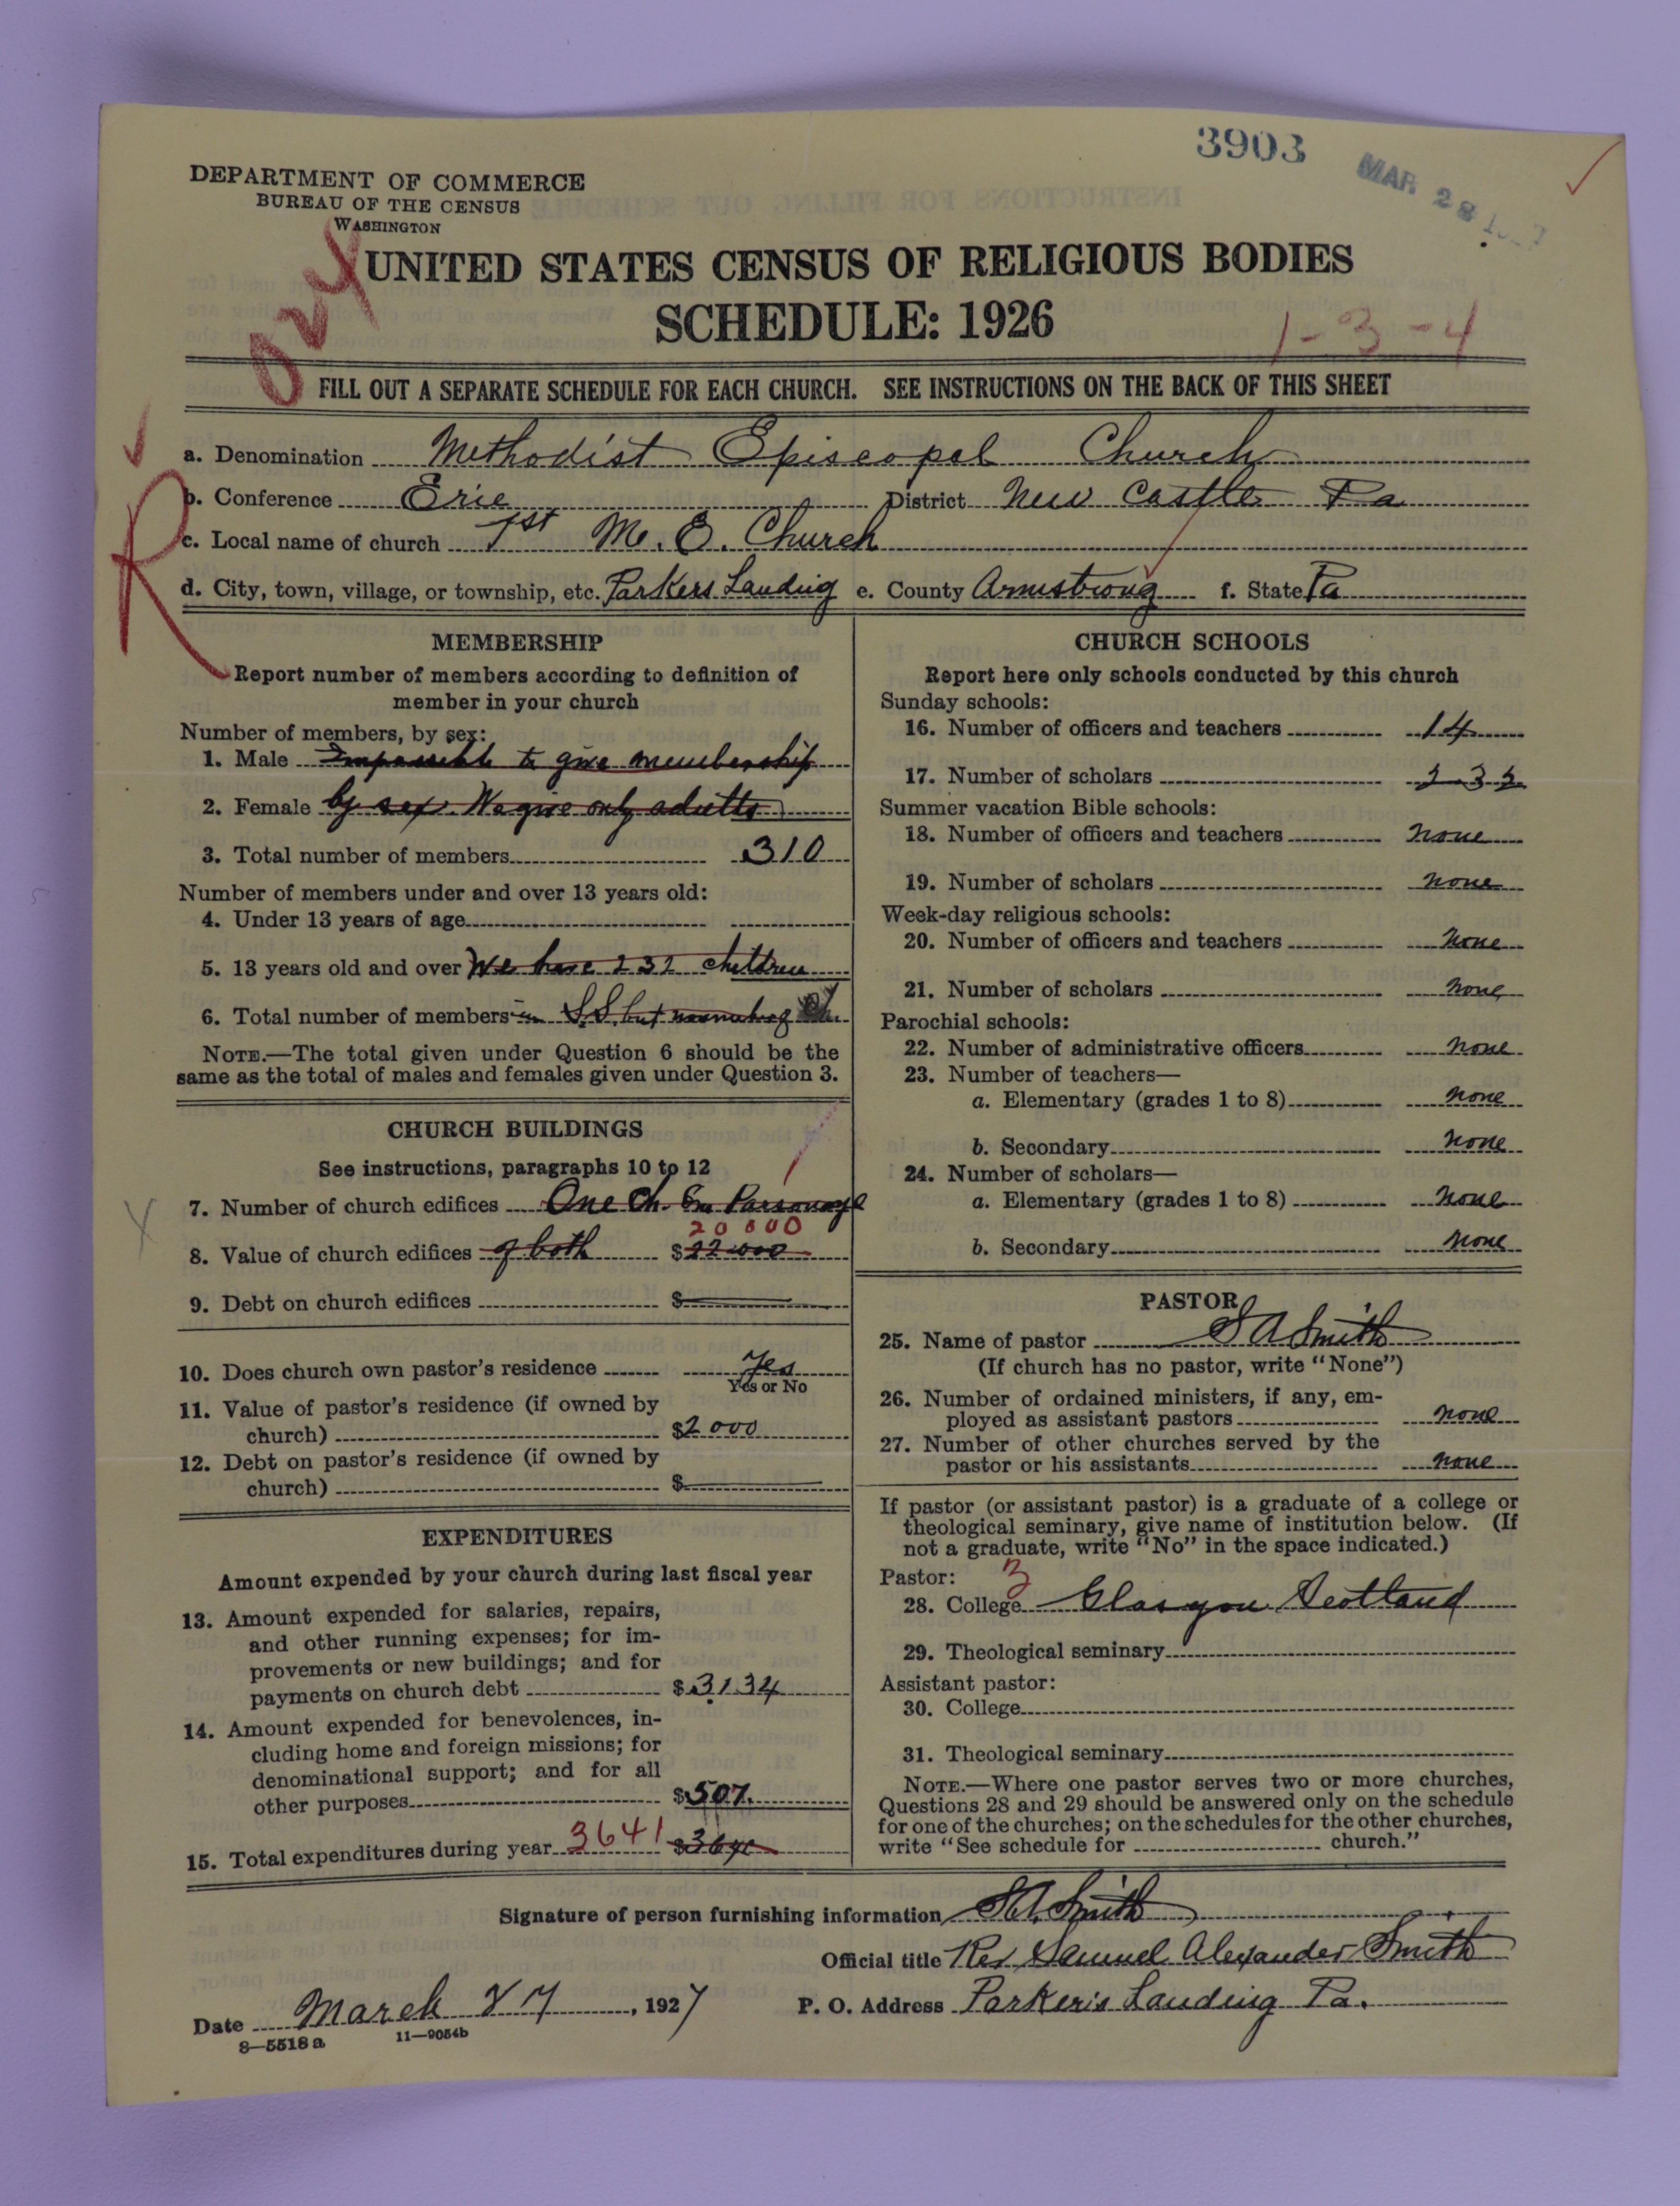 3903
MAR 28
DEPARTMENT OF COMMERCE
BUREAU OF THE CENSUS
WASHINGTON
024
UNITED STATES CENSUS OF RELIGIOUS BODIES
SCHEDULE: 1926
1-3-4
FILL OUT A SEPARATE SCHEDULE FOR EACH CHURCH. SEE INSTRUCTIONS ON THE BACK OF THIS SHEET
R
a. Denomination Methodist Episcopal Church
b. Conference Erie District New Castle Pa
c. Local name of church 1st M. E. Church
d. City, town, village, or township, etc. Parkers Landing e. County Armstrong f. State Pa
MEMBERSHIP
Report number of members according to definition of
member in your church
Number of members, by sex:
1. Male Impossible to give membership
2. Female by sex. We give only adults
3. Total number of members 310
Number of members under and over 13 years old:
4. Under 13 years of age
5. 13 years old and over We have 232 children
6. Total number of members in S.S. but Ch.
NOTE.—The total given under Question 6 should be the
same as the total of males and females given under Question 3.
CHURCH BUILDINGS
See instructions, paragraphs 10 to 12
1
7. Number of church edifices One Ch. One Parsonage
20000
8. Value of church edifices of both $22000
9. Debt on church edifices $
10. Does church own pastor's residence Yes
Yes or No
11. Value of pastor's residence (if owned by
church) $2000
12. Debt on pastor's residence (if owned by
church) $
EXPENDITURES
Amount expended by your church during last fiscal year
13. Amount expended for salaries, repairs,
and other running expenses; for im-
provements or new buildings; and for
payments on church debt $3134
14. Amount expended for benevolences, in-
cluding home and foreign missions; for
denominational support; and for all
other purposes $507.
15. Total expenditures during year 3641 $
CHURCH SCHOOLS
Report here only schools conducted by this church
Sunday schools:
16. Number of officers and teachers 14
17. Number of scholars 232
Summer vacation Bible schools:
18. Number of officers and teachers none
19. Number of scholars none
Week-day religious schools:
20. Number of officers and teachers none
21. Number of scholars none
Parochial schools:
22. Number of administrative officers none
23. Number of teachers—
a. Elementary (grades 1 to 8) none
b. Secondary none
24. Number of scholars—
a. Elementary (grades 1 to 8) none
b. Secondary none
PASTOR
25. Name of pastor S A Smith
(If church has no pastor, write "None")
26. Number of ordained ministers, if any, em-
ployed as assistant pastors none
27. Number of other churches served by the
pastor or his assistants none
If pastor (or assistant pastor) is a graduate of a college or
theological seminary, give name of institution below. (If
not a graduate, write "No" in the space indicated.)
Pastor: 3
28. College Glasgow Scotland
29. Theological seminary
Assistant pastor:
30. College
31. Theological seminary
NOTE.—Where one pastor serves two or more churches,
Questions 28 and 29 should be answered only on the schedule
for one of the churches; on the schedules for the other churches,
write "See schedule for church."
Signature of person furnishing information S.A. Smith
Official title Rev Samuel Alexander Smith
Date March 27, 1927 P. O. Address Parker's Landing Pa.
8—5518 a 11—9054b